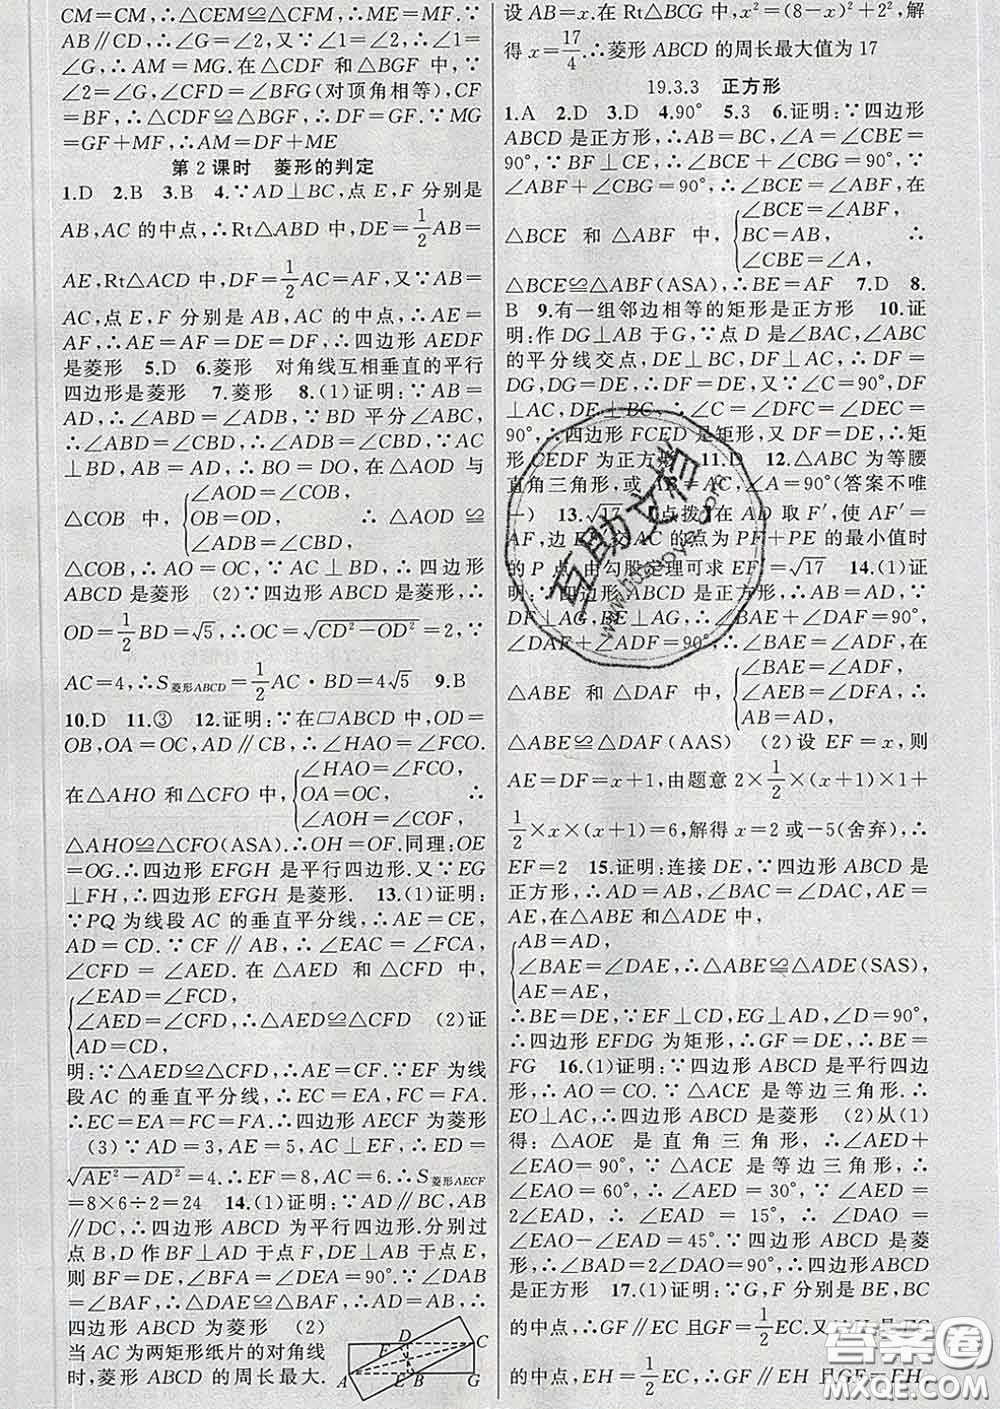 CM=CM,∴△CEM≌△CFM,∴ME=MF.∵
AB∥CD,∴∠G=∠2,又∵∠1=∠2,∴∠1=
∠G,∴AM=MG.在△CDF 和△BGF 中,∵
∠2=∠G,∠CFD=∠BFG(对顶角相等),CF
=BF,∴△CDF≌△BGF,∴DF=GF.∵MG
=GF+MF,∴AM=DF+ME
第2课时 菱形的判定
1.D 2.B 3.B 4.∵AD⊥BC,点 E,F 分别是
AB,AC 的中点,∴Rt△ABD 中,DE=1/2AB=
AE,Rt△ACD 中,DF=1/2AC=AF,又∵AB=
AC,点 E,F 分别是 AB,AC 的中点,∴AE=
AF,∴AE=AF=DE=DF,∴四边形 AEDF
是菱形 5.D 6.菱形 对角线互相垂直的平行
四边形是菱形 7.菱形 8.(1)证明:∵AB=
AD,∴∠ABD=∠ADB,∵BD 平分∠ABC,
∴∠ABD=∠CBD,∴∠ADB=∠CBD,∵AC
⊥BD,AB=AD,∴BO=DO,在△AOD 与
△COB 中,{∠AOD=∠COB, OB=OD, ∠ADB=∠CBD, ∴△AOD≌
△COB,∴AO=OC,∵AC⊥BD,∴四边形
ABCD 是菱形 (2)∵四边形 ABCD 是菱形,∴
OD=1/2BD=√5,∴OC=√(CD²−OD²)=2,∵
AC=4,∴S菱形ABCD=1/2AC·BD=4√5 9.B
10.D 11.③ 12.证明:∵在▱ABCD 中,OD=
OB,OA=OC,AD∥CB,∴∠HAO=∠FCO.
在△AHO 和△CFO 中,{∠HAO=∠FCO, OA=OC, ∠AOH=∠COF, ∴
△AHO≌△CFO(ASA).∴OH=OF.同理:OE
=OG.∴四边形 EFGH 是平行四边形.又∵EG
⊥FH,∴四边形 EFGH 是菱形. 13.(1)证明:
∵PQ 为线段 AC 的垂直平分线,∴AE=CE,
AD=CD.∵CF∥AB,∴∠EAC=∠FCA,
∠CFD=∠AED.在△AED 和△CFD 中,
{∠EAD=∠FCD, ∠AED=∠CFD, AD=CD, ∴△AED≌△CFD (2)证
明:∵△AED≌△CFD,∴AE=CF.∵EF 为线
段AC 的垂直平分线,∴EC=EA,FC=FA.
∴EC=EA=FC=FA.∴四边形 AECF 为菱形
(3)∵AD=3,AE=5,AC⊥EF,∴ED=
√(AE²−AD²)=4.∴EF=8,AC=6.∴S菱形AECF
=8×6÷2=24 14.(1)证明:∵AD∥BC,AB
∥DC,∴四边形 ABCD 为平行四边形.分别过
点 B,D 作 BF⊥AD 于点 F,DE⊥AB 于点 E,
则 BF=DE,∠BFA=∠DEA=90°.∵∠DAB
=∠BAF,∴△DAE≌△BAF,∴AD=AB,∴
四边形 ABCD 为菱形 (2)
当 AC 为两矩形纸片的对角线
时,菱形 ABCD 的周长最大.
D
F
C
A
E
B
G
设 AB=x.在 Rt△BCG 中,x²=(8−x)²+2²,解
得 x=17/4.∴菱形 ABCD 的周长最大值为 17
19.3.3 正方形
1.A 2.D 3.D 4.90° 5.3 6.证明:∵四边形
ABCD 是正方形,∴AB=BC,∠A=∠CBE=
90°,∵BF⊥CE,∴∠BCE+∠CBG=90°,∵
∠ABF+∠CBG=90°,∴∠BCE=∠ABF,在
△BCE 和△ABF 中,{∠BCE=∠ABF, BC=AB, ∠CBE=∠A, ∴
△BCE≌△ABF(ASA),∴BE=AF 7.D 8.
B 9.有一组邻边相等的矩形是正方形 10.证
明:作 DG⊥AB 于 G,∵点 D 是∠BAC,∠ABC
的平分线交点,DE⊥BC,DF⊥AC,∴DF=
DG,DG=DE,∴DF=DE,又∵∠C=90°,DF
⊥AC,DE⊥BC,∴∠C=∠DFC=∠DEC=
90°,∴四边形 FCED 是矩形,又 DF=DE,∴矩
形 CEDF 为正方形 11.D 12.△ABC 为等腰
直角三角形,或 AB=AC,∠A=90°(答案不唯
一) 13.√17 【点拨】在 AD 取 F′,使 AF′=
AF,边 交 AC 的点为 PF+PE 的最小值时
的 P 点,由勾股定理可求 EF′=√17 14.(1)证
明:∵四边形 ABCD 是正方形,AB=AD,∵
DF⊥AG,BE⊥AG,∴∠BAE+∠DAF=90°,
∠DAF+∠ADF=90°,∴∠BAE=∠ADF,在
△ABE 和△DAF 中,{∠BAE=∠ADF, ∠AEB=∠DFA, AB=AD, ∴
△ABE≌△DAF(AAS) (2)设 EF=x,则
AE=DF=x+1,由题意 2×1/2×(x+1)×1+
1/2×x×(x+1)=6,解得 x=2 或−5(舍弃),∴
EF=2 15.证明:连接 DE,∵四边形 ABCD 是
正方形,∴AD=AB,∠BAC=∠DAC,AE=
AE,在△ABE 和△ADE 中,
{AB=AD, ∠BAE=∠DAE, AE=AE, ∴△ABE≌△ADE(SAS),
∴BE=DE,∵EF⊥CD,EG⊥AD,∠D=90°,
∴四边形 EFDG 为矩形,∴GF=DE,∴BE=
FG 16.(1)证明:∵四边形 ABCD 是平行四边
形,∴AO=CO.∵△ACE 是等边三角形.∴
EO⊥AC,∴四边形 ABCD 是菱形 (2)从(1)
得:△AOE 是直角三角形,∴∠AED+
∠EAO=90°,∵△ACE 是等边三角形,∴
∠EAO=60°,∴∠AED=30°,∵∠AED=
2∠EAD,∴∠EAD=15°,∴∠DAO=
∠EAO−∠EAD=45°.∵四边形 ABCD 是菱
形,∴∠BAD=2∠DAO=90°,∴四边形ABCD
是正方形 17.(1)证明:∵G,F 分别是 BE,BC
的中点,∴GF∥EC 且GF=1/2EC.又∵H 是 EC
的中点,EH=1/2EC,∴GF∥EH 且GF=EH,
互助文档
www.hdzuoye.com
答案圈
MXQE.COM